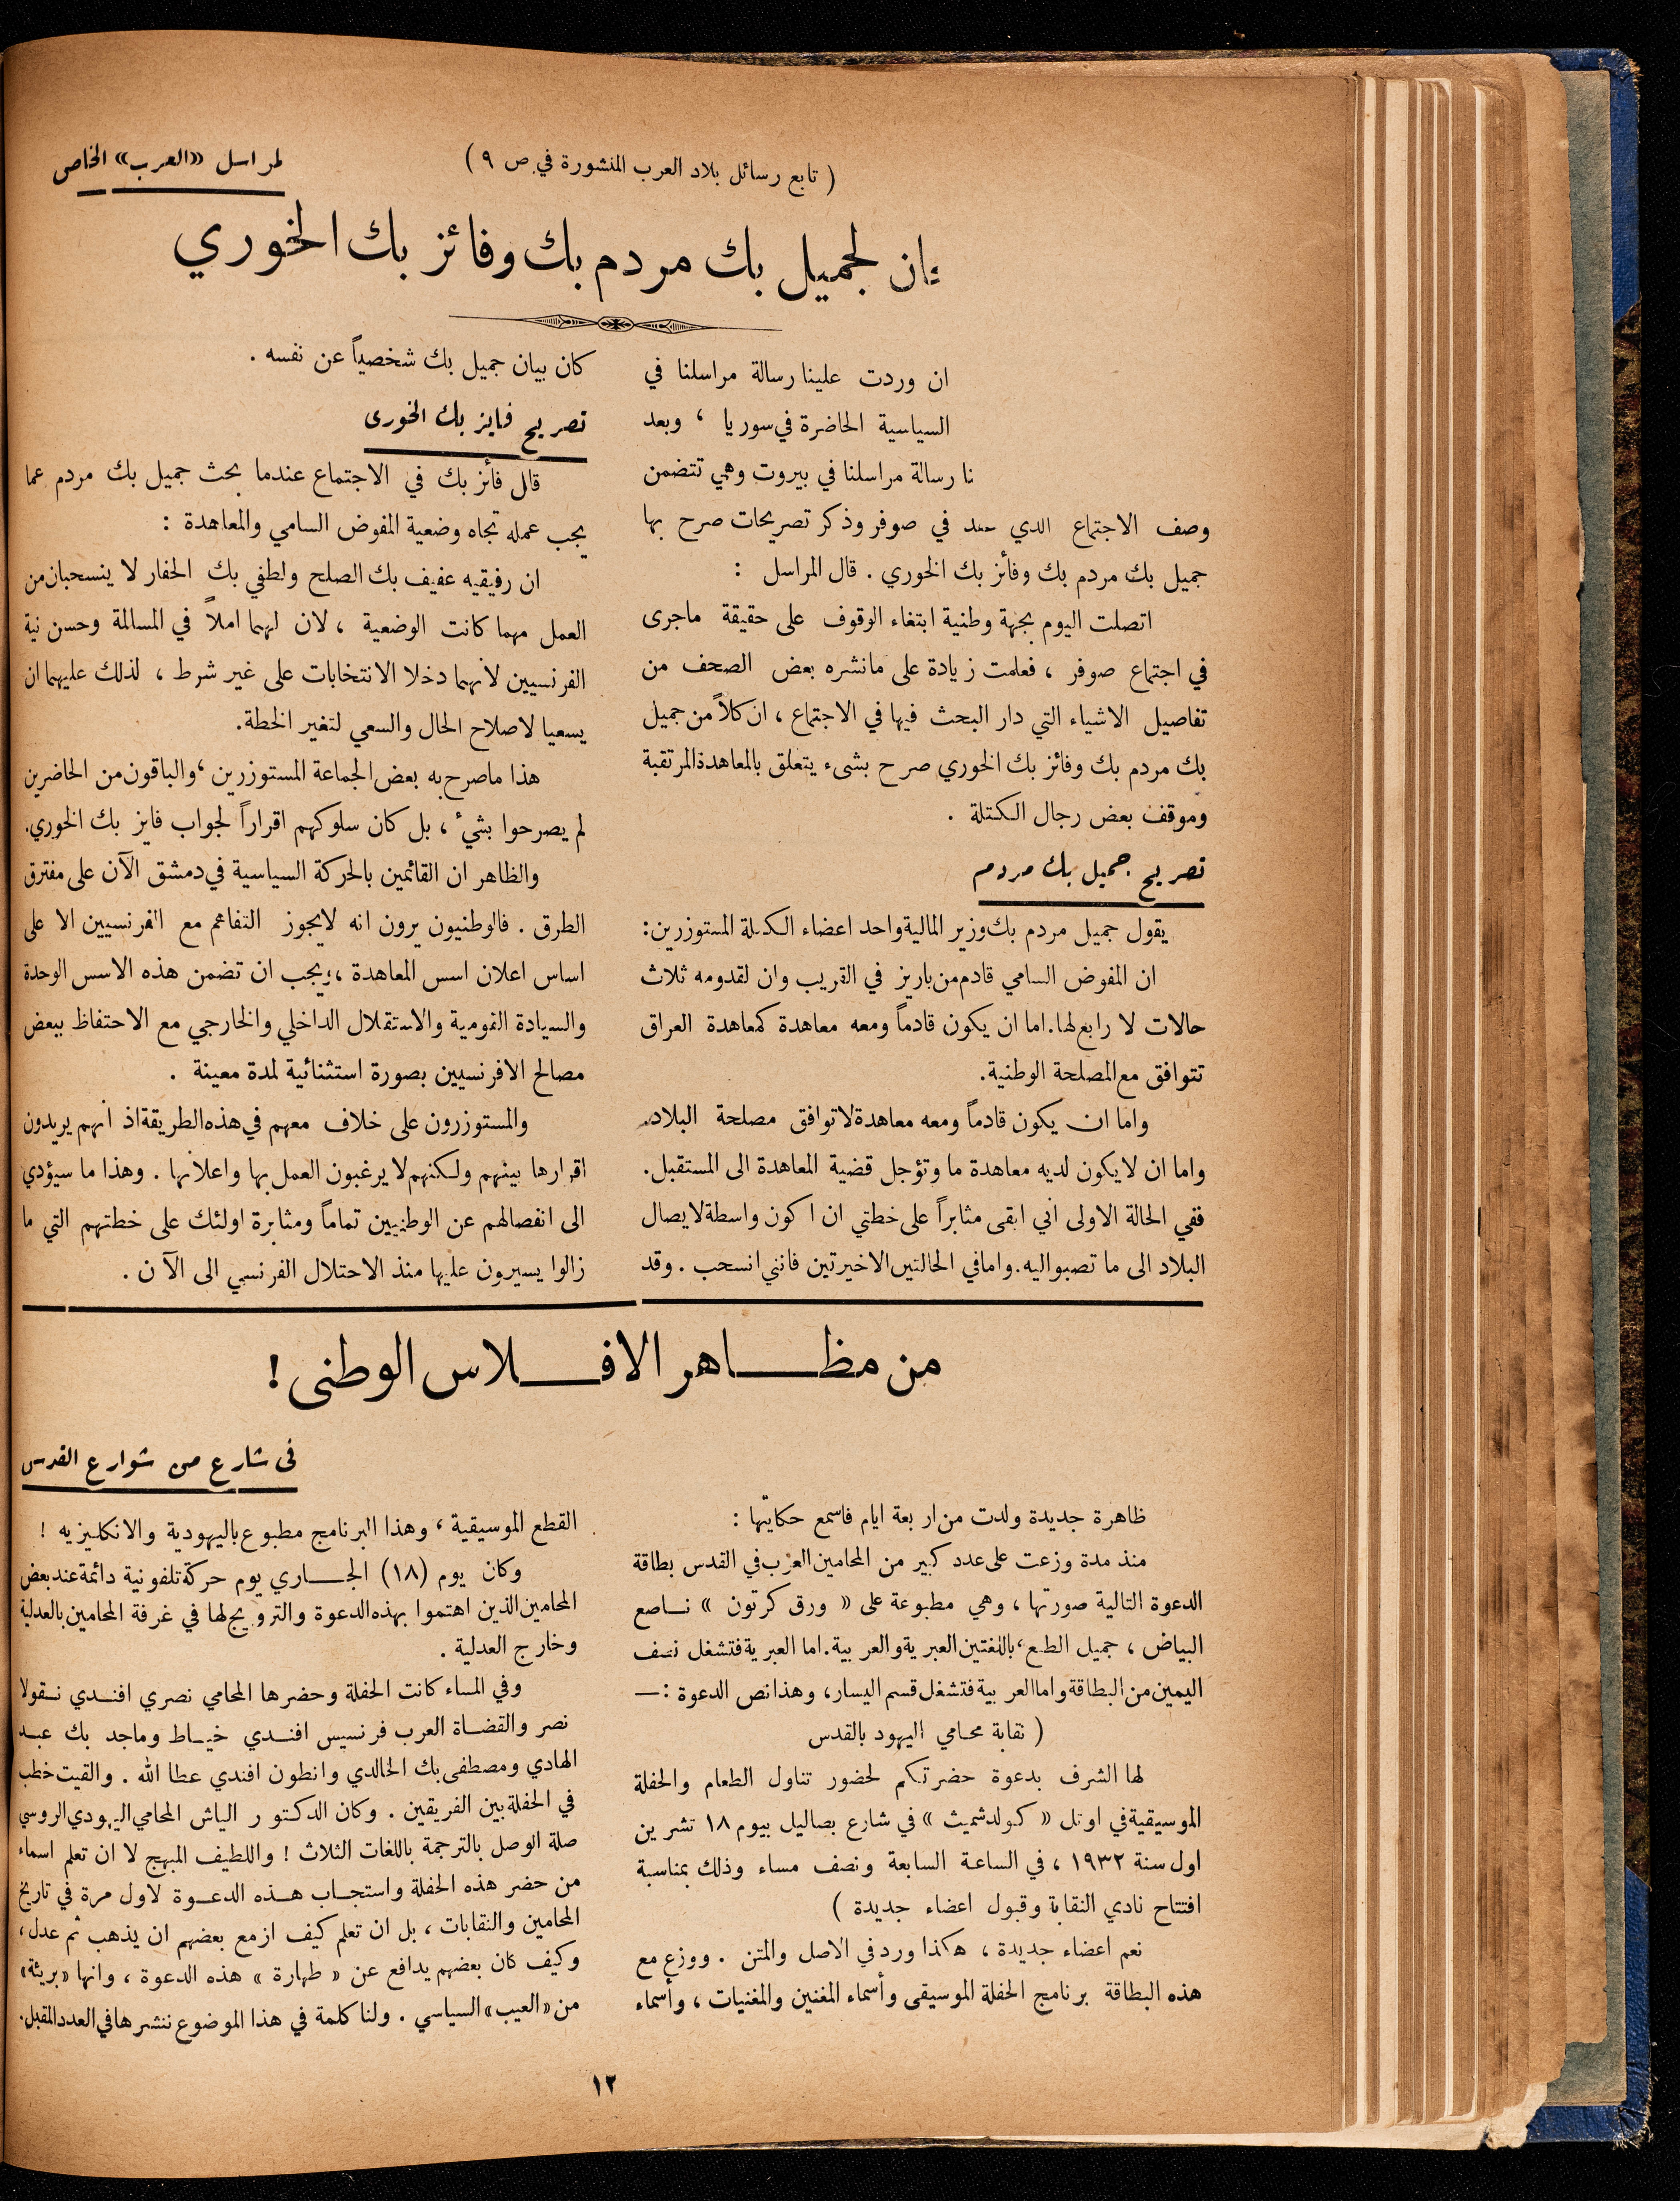 ( تابع رسائل بلاد العرب المنشورة في ص ٩ )
لمراسل «العرب» الخاص
لجميل بك مردم بك وفائز بك الخوري
ان وردت علينا رسالة مراسلنا في
السياسية الحاضرة في سوريا ، وبعد
نا رسالة مراسلنا في بيروت وهي تتضمن
وصف الاجتماع الذي عقد في صوفر وذكر تصريحات صرح بها
جميل بك مردم بك وفائز بك الخوري . قال المراسل :
اتصلت اليوم بجهة وطنية ابتغاء الوقوف على حقيقة ماجرى
في اجتماع صوفر ، فعلمت زيادة على مانشره بعض الصحف من
تفاصيل الاشياء التي دار البحث فيها في الاجتماع ، ان كلاً من جميل
بك مردم بك وفائز بك الخوري صرح بشىء يتعلق بالمعاهدة المرتقبة
وموقف بعض رجال الكتلة .
تصريح جميل بك مردم
يقول جميل مردم بك وزير المالية واحد اعضاء الكتلة المستوزرين :
ان المفوض السامي قادم من باريز في القريب وان لقدومه ثلاث
حالات لا رابع لها . اما ان يكون قادماً ومعه معاهدة كمعاهدة العراق
تتوافق مع المصلحة الوطنية .
واما ان يكون قادماً ومعه معاهدة لا توافق مصلحة البلاد .
واما ان لا يكون لديه معاهدة ما وتؤجل قضية المعاهدة الى المستقبل .
ففي الحالة الاولى اني ابقى مثابراً على خطتي ان اكون واسطة لايصال
البلاد الى ما تصبو اليه . واما في الحالتين الاخيرتين فانني انسحب . وقد
كان بيان جميل بك شخصياً عن نفسه .
تصريح فايز بك الخورى
قال فائز بك في الاجتماع عندما بحث جميل بك مردم عما
يجب عمله تجاه وضعية المفوض السامي والمعاهدة :
ان رفيقيه عفيف بك الصلح ولطفي بك الحفار لا ينسحبان من
العمل مهما كانت الوضعية ، لان لهما املاً في المسالمة وحسن نية
الفرنسيين لانهما دخلا الانتخابات على غير شرط ، لذلك عليهما ان
يسعيا لاصلاح الحال والسعي لتغير الخطة .
هذا ماصرح به بعض الجماعة المستوزرين ، والباقون من الحاضرين
لم يصرحوا بشيء ، بل كان سلوكهم اقراراً لجواب فايز بك الخوري .
والظاهر ان القائمين بالحركة السياسية في دمشق الآن على مفترق
الطرق . فالوطنيون يرون انه لايجوز التفاهم مع الفرنسيين الا على
اساس اعلان اسس المعاهدة ، ويجب ان تضمن هذه الاسس الوحدة
والسيادة القومية والاستقلال الداخلي والخارجي مع الاحتفاظ ببعض
مصالح الافرنسيين بصورة استثنائية لمدة معينة .
والمستوزرون على خلاف معهم في هذه الطريقة اذ انهم يريدون
اقرارها بينهم ولكنهم لا يرغبون العمل بها واعلانها . وهذا ما سيؤدي
الى انفصالهم عن الوطنيين تماماً ومثابرة اولئك على خطتهم التي ما
زالوا يسيرون عليها منذ الاحتلال الفرنسي الى الآن .
من مظـاهر الافـلاس الوطنى !
فى شارع من شوارع القدس
ظاهرة جديدة ولدت من اربعة ايام فاسمع حكايتها :
منذ مدة وزعت على عدد كبير من المحامين العرب في القدس بطاقة
الدعوة التالية صورتها ، وهي مطبوعة على « ورق كرتون » نـاصع
البياض ، جميل الطبع ، باللغتين العبرية والعربية . اما العبرية فتشغل نصف
اليمين من البطاقة واما العربية فتشغل قسم اليسار ، وهذا نص الدعوة : —
( نقابة محامي اليهود بالقدس
لها الشرف بدعوة حضرتكم لحضور تناول الطعام والحفلة
الموسيقية في اوتل « كولدشميث » في شارع بصاليل بيوم ١٨ تشرين
اول سنة ١٩٣٢ ، في الساعة السابعة ونصف مساء وذلك بمناسبة
افتتاح نادي النقابة وقبول اعضاء جديدة )
نعم اعضاء جديدة ، هكذا ورد في الاصل والمتن . ووزع مع
هذه البطاقة برنامج الحفلة الموسيقى وأسماء المغنين والمغنيات ، وأسماء
القطع الموسيقية ، وهذا البرنامج مطبوع باليهودية والانكليزيه !
وكان يوم (١٨) الجـاري يوم حركة تلفونية دائمة عند بعض
المحامين الذين اهتموا بهذه الدعوة والترويج لها في غرفة المحامين بالعدلية
وخارج العدلية .
وفي المساء كانت الحفلة وحضرها المحامي نصري افنـدي نـقولا
نصر والقضـاة العرب فرنسيس افنـدي خيـاط وماجد بك عبـد
الهادي ومصطفى بك الخالدي وانطون افندي عطا الله . والقيت خطب
في الحفلة بين الفريقين . وكان الدكتور الياش المحامي اليهودي الروسي
صلة الوصل بالترجمة باللغات الثلاث ! واللطيف المبهج لا ان تعلم اسماء
من حضر هذه الحفلة واستجـاب هـذه الدعـوة لاول مرة في تاريخ
المحامين والنقابات ، بل ان تعلم كيف ازمع بعضهم ان يذهب ثم عدل ،
وكيف كان بعضهم يدافع عن « طهارة » هذه الدعوة ، وانها «بريئة»
من «العيب» السياسي . ولنا كلمة في هذا الموضوع ننشرها في العدد المقبل .
١٢